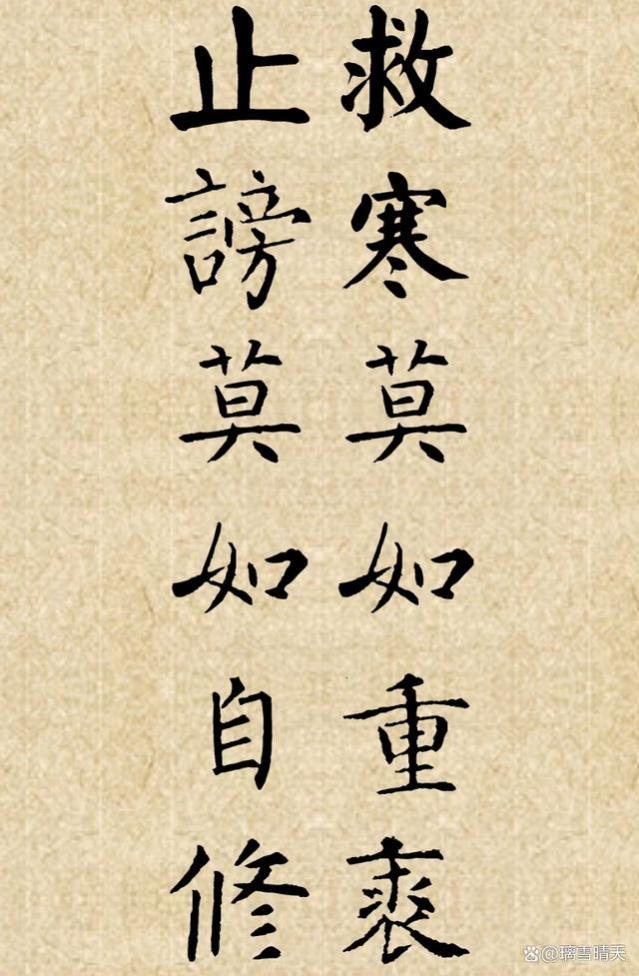 救寒莫如重裘
止謗莫如自修
璃雪晴天